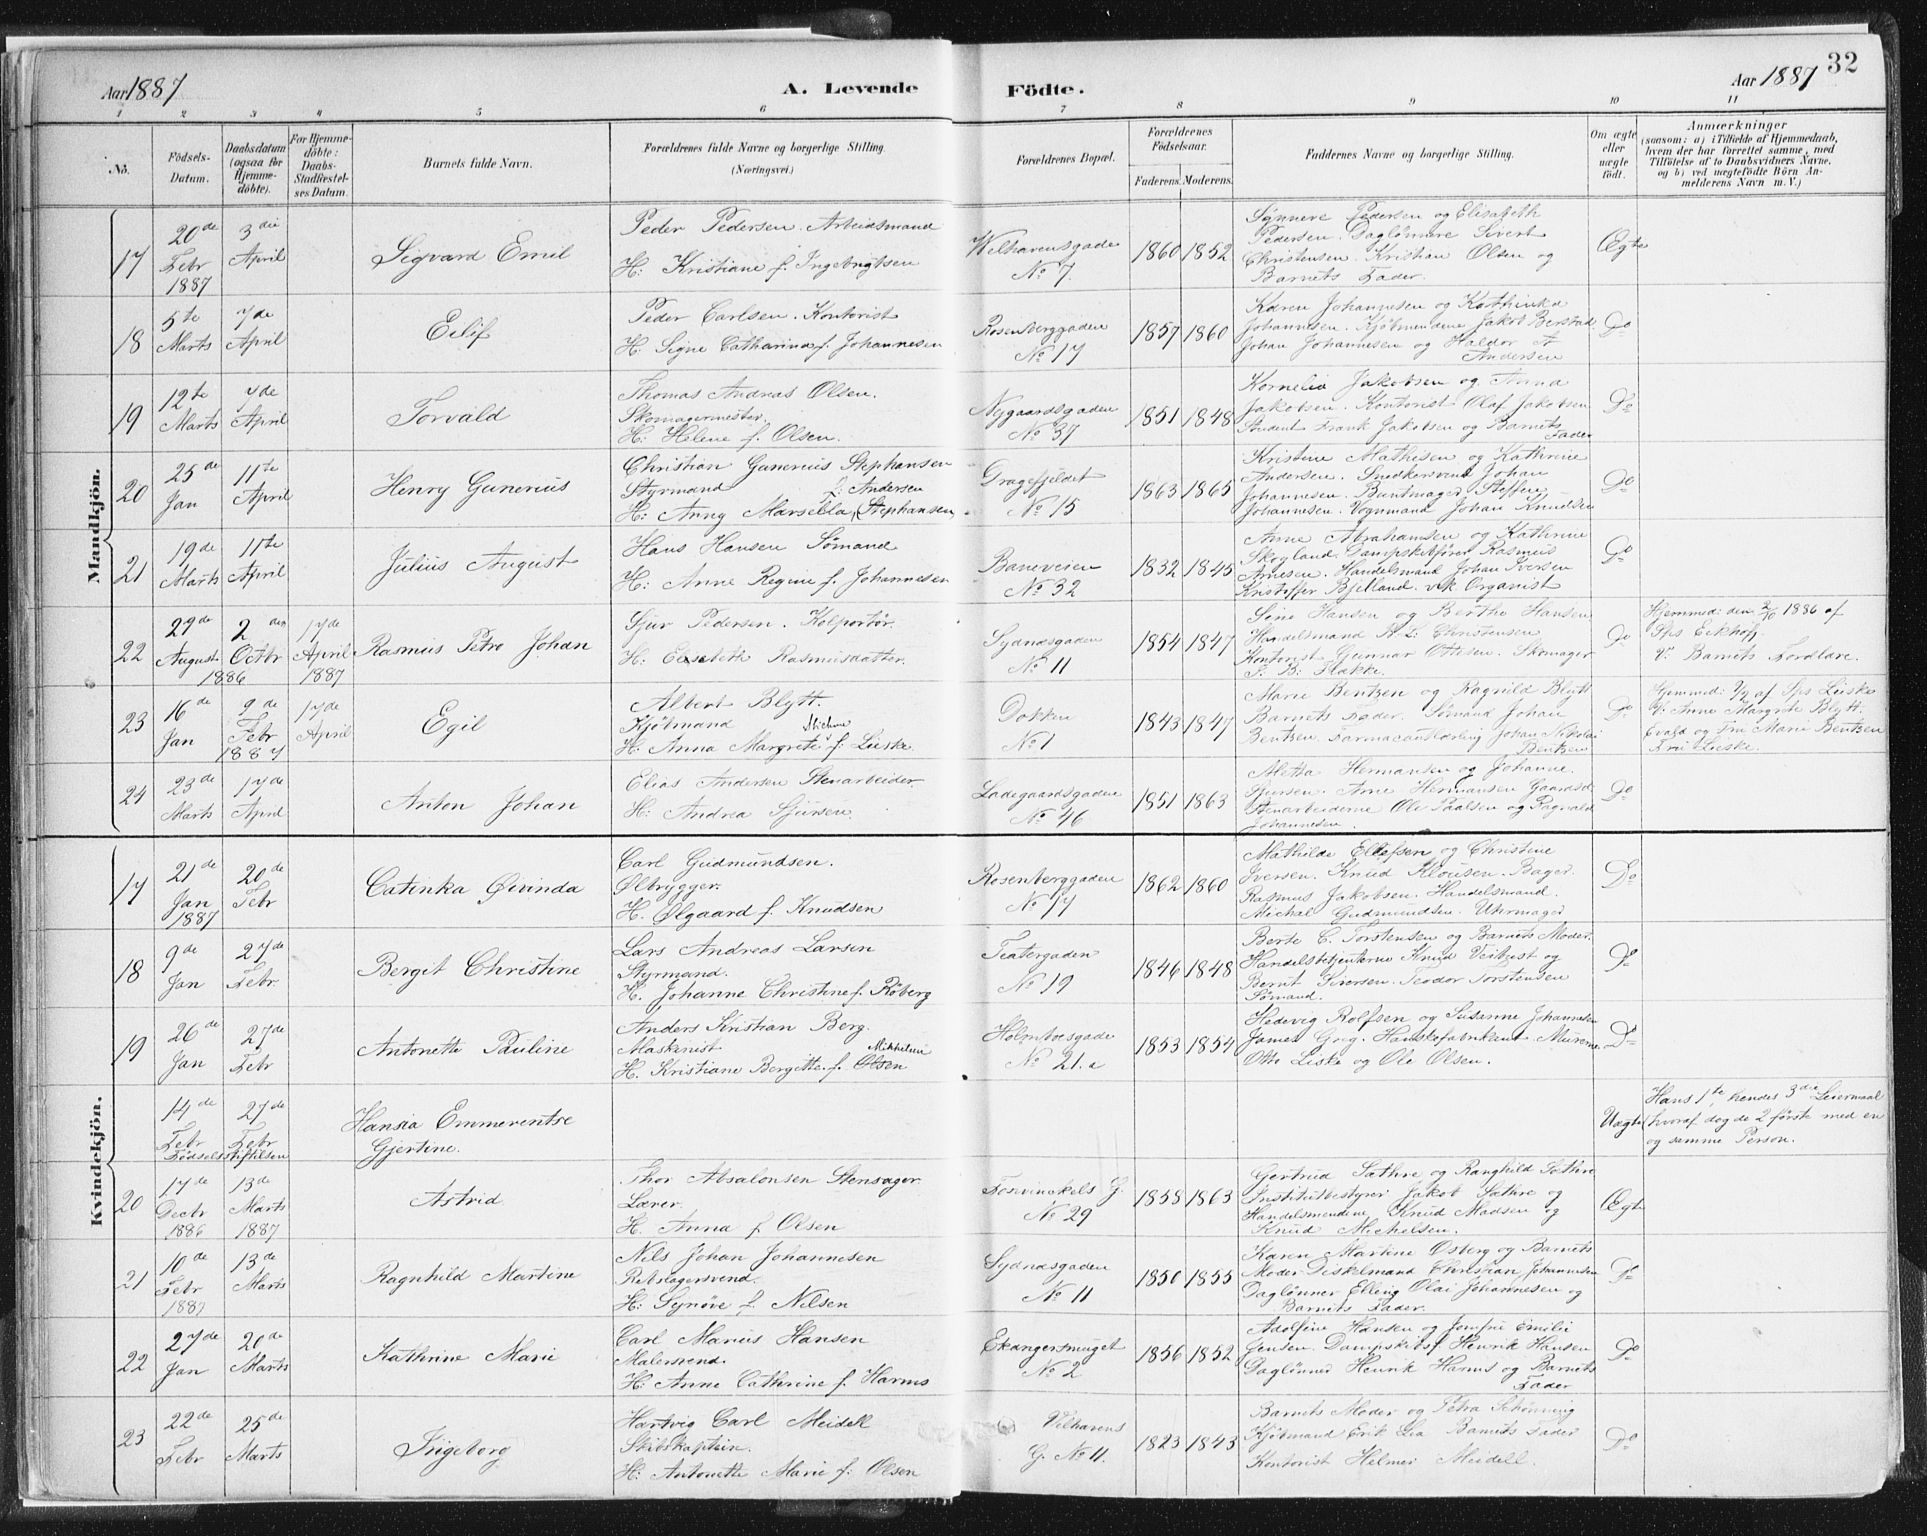 Aar 1887
A. Levende
Födte.
Aar 1887
32
1 2 3 4 5 6 7 8 9 10 11
No. Födsels-Datum. Daabsdatum (ogsaa for Hjemme-döbte). For Hjemme-döbte: Daabs-Stadfæstel-ses Datum. Barnets fulde Navn. Forældrenes fulde Navne og borgerlige Stilling. (Næringsvei.) Forældrenes Bopæl. Forældrenes Födselsaar. Faderens. Moderens. Faddernes Navne og borgerlige Stilling. Om ægte eller uægte födt. Anmærkninger (saasom: a) i Tilfælde af Hjemmedaab, hvem der har forrettet samme, med Tilföielse af to Daabsvidners Navne, og b) ved uægtefödte Börn An-melderens Navn m. V.)
Mandkjön.
17 20de Febr 1887 3die April Sigvard Emil
Peder Pedersen. Arbeidsmand
H: Kristiane f. Ingebrigtsen
Welhavensgade No 7. 1860 1852
Synneve Pedersen og Elisabeth
Pedersen. Daglønnere Sivert
Christensen. Kristian Olsen og
Barnets Fader.
Ægte
18 5te Marts 7de April Eilif
Peder Carlsen. Kontorist
H. Signe Catharina f. Johannesen
Rosenberggaden No 17 1857 1860
Karen Johannesen og Kathinka
Johannesen. Kjöbmendene Jakob Berstad
Johan Johannesen og Haldor A
Andersen
Do
19 12te Marts 7de April Torvald
Thomas Andreas Olsen.
Skomagermester.
H: Helene f. Olsen.
Nygaardsgaden No 37 1851 1848
Kornelia Jakobsen og Anna
Jakobsen. Kontorist Olaf Jakobsen
Student Frank Jakobsen og Barnets
Fader
Do
20 25de Jan 11te April Henry Gunerius
Christian Gunerius Stephansen
Styrmand f. Andersen
H: Anny Marsella (Stephansen)
Dragefjeldet No 15 1863 1865
Kristine Mathesen og Kathrine
Andersen. Snedkersvend Johan
Johannesen. Buntmager Steffen
Johannesen. Vognmand Johan Knudsen
Do
21 19de Marts 11te April Julius August
Hans Hansen Sømand
H: Anne Regine f. Johannesen
Baneveien No 32 1832 1845
Anne Abrahamsen og Kathrine
Skogland. Dampskibsfører Rasmus
Arnesen. Handelsmand Johan Iversen
Kristoffer Bjelland. vik. Organist
Do
22 29de August 2den Octbr 1886 17de April 1887 Rasmus Petro Johan
Sjur Pedersen. Kolportør.
H: Elisabeth Rasmusdatter.
Sydnæsgaden No 11 1854 1847
Sine Hansen og Berthe Hansen
Handelsmand H. L: Christensen
Kontorist Gunnar Ottesen. Skomager
P. B: Flakke.
Do
Hjemmed: den 2/10 1886 af
Sps Eckhoff.
V: Barnets Forældre.
23 16de Jan 9de Febr 1887 17de April Egil
Albert Blytt.
Kjöbmand
H. Anna Margrete f. Lieske
Dokken No 1 1843 1847
Marie Bentzen og Ragnild Blytt
Barnets Fader. Sømand Johan
Bentzen. Farmaceutlærling Johan Nikolai
Bentzen
Do
Hjemmed: 9/2 af Sps Lieske
V: Anne Margrete Blytt.
Evald og Fru Marie Bentzen
Fru Lieske.
24 23de Marts 17de April Anton Johan
Elias Andersen Stenarbeider.
H: Andrea Sjursen.
Ladegaardsgaden No 46 1851 1863
Metta Hermansen og Johanne
Sjursen. Arne Hermansen Gaardsd
Stenarbeiderne Ole Paalsen og Ragnald
Johannesen.
Do
Kvindekjön.
17 21de Jan 1887 20de Febr Catinka Øivinda
Carl Gudmundsen.
Ølbrygger.
H. Ølgaard f. Knudsen
Rosenberggaden No 17 1862 1860
Mathilde Ellefsen og Christine
Iversen. Knud Klousen. Bager.
Rasmus Jakobsen. Handelsmand.
Michal Gudmundsen. Uhrmager
Do
18 9de Jan 27de Febr. Bergit Christine
Lars Andreas Larsen
Styrmand.
H. Johanne Christine f. Röberg
Teatergaden No 19 1846 1848
Berte C. Torstensen og Barnets Moder.
Handelsbetjenterne Knud Veitvest og
Bernt Siversen. Teodor Torstensen
Sömand.
Do
19 26de Jan 27de Febr Antonette Pauline
Anders Kristian Berg.
Maskinist Mikkeline
H. Kristiane Bergitte f. Olsen
Holmboesgade No 21.a 1853 1854
Hedevig Rolfsen og Susanne Johannesen
James Grig. Hanskefabrikant. Murerne
Otto Liske og Ole Olsen.
Do
14de Febr 27de Febr Fødselsstiftelsen Hansia Emmerentse
Gjertine.
Uægte
Hans 1te, hendes 3die Leiermaal
hvoraf dog de 2 første med en
og samme Person.
20 17de Decbr 1886 13de Marts 1887 Astrid
Thor Absalonsen Stensager
Lærer.
H. Anna f. Olsen
Fosvinckels G. No 29 1858 1863
Gertrud Sathre og Ranghild Sathre
Institutbestyrer Jakob Sathre og
Handelsmendene Knud Madsen og
Knud Michelsen.
Ægte
21 10de Febr 1887 13de Marts Ragnhild Martine
Nils Johan Johannesen
Rebslagersvend.
H: Synöve f. Nilsen
Sydnæsgaden No 11 1850 1855
Karen Martine Osberg og Barnets
Moder. Diskelmand Christian Johannesen
Daglønner Elling Olai Johannesen og
Barnets Fader.
Do
22 27de Jan 20de Marts Kathrine Marie
Carl Marius Hansen
Malersvend.
H: Anne Cathrine f. Harms
Ekangersmuget No 2 1856 1852
Adolfine Hansen og Jomfru Emilie
Jensen. Dampskibsf. Henrik Hansen
Daglønner Henrik Harms og Barnets
Fader
Do
23 22de Febr 25de Marts Ingeborg
Hartvig Carl Meidell
Skibskaptein.
H: Antonette Marie f: Olsen
Vilhavens G. No 11. 1823 1843
Barnets Moder og Petra Schønning
Kjöbmand Erik Lea Barnets Fader
Kontorist Helmer Meidell.
Do